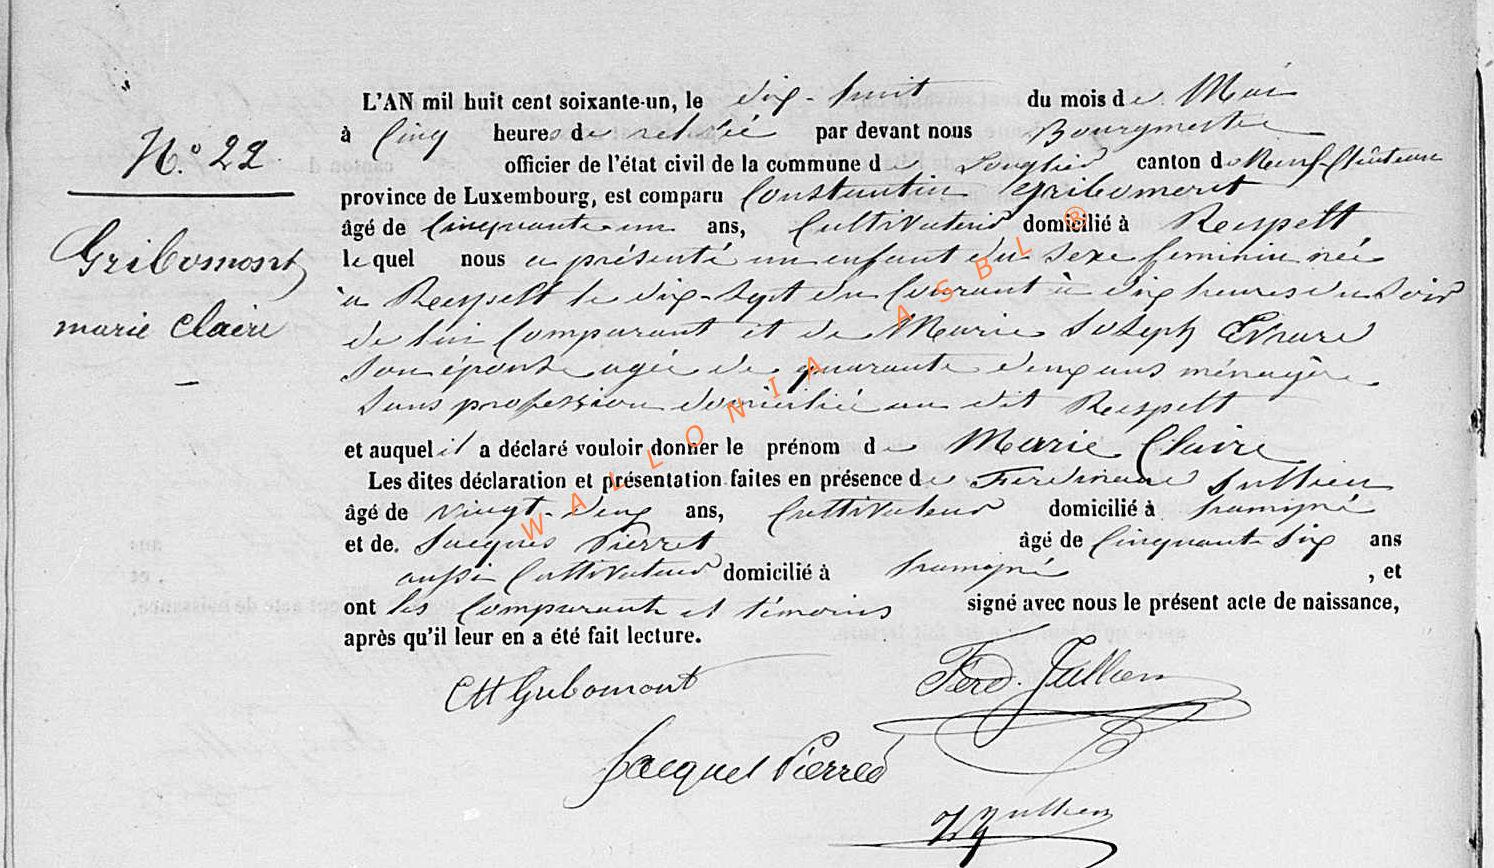 L'AN mil huit cent soixante-un, le dix-huit du mois de Mai
N.° 22
à Cinq heures de relevée par devant nous Bourgmestre
officier de l'état civil de la commune de Longlier canton de Neuf-Château
province de Luxembourg, est comparu Constantin Gribomont
âgé de Cinquante-un ans, Cultivateur domicilié à Respelt
Gribomont
lequel nous a présenté un enfant du sexe féminin née
à Respelt le dix-sept du Courant à dix heures du Soir
marie Claire
de lui Comparant et de Marie Joseph Evrard
Son épouse agée de quarante deux ans ménagère
Sans profession domiciliée au dit Respelt
et auquel il a déclaré vouloir donner le prénom de Marie Claire
Les dites déclaration et présentation faites en présence de Ferdinand Jullien
âgé de vingt-deux ans, Cultivateur domicilié à
et de. Jacques Pierret âgé de Cinquante Six ans
aussi Cultivateur domicilié à , et
ont les Comparant et témoins signé avec nous le présent acte de naissance,
après qu'il leur en a été fait lecture.
Ctt Gribomont
Ferd. Jullien
Jacques Pierred
Jullien
WALLONIA ASBL ®